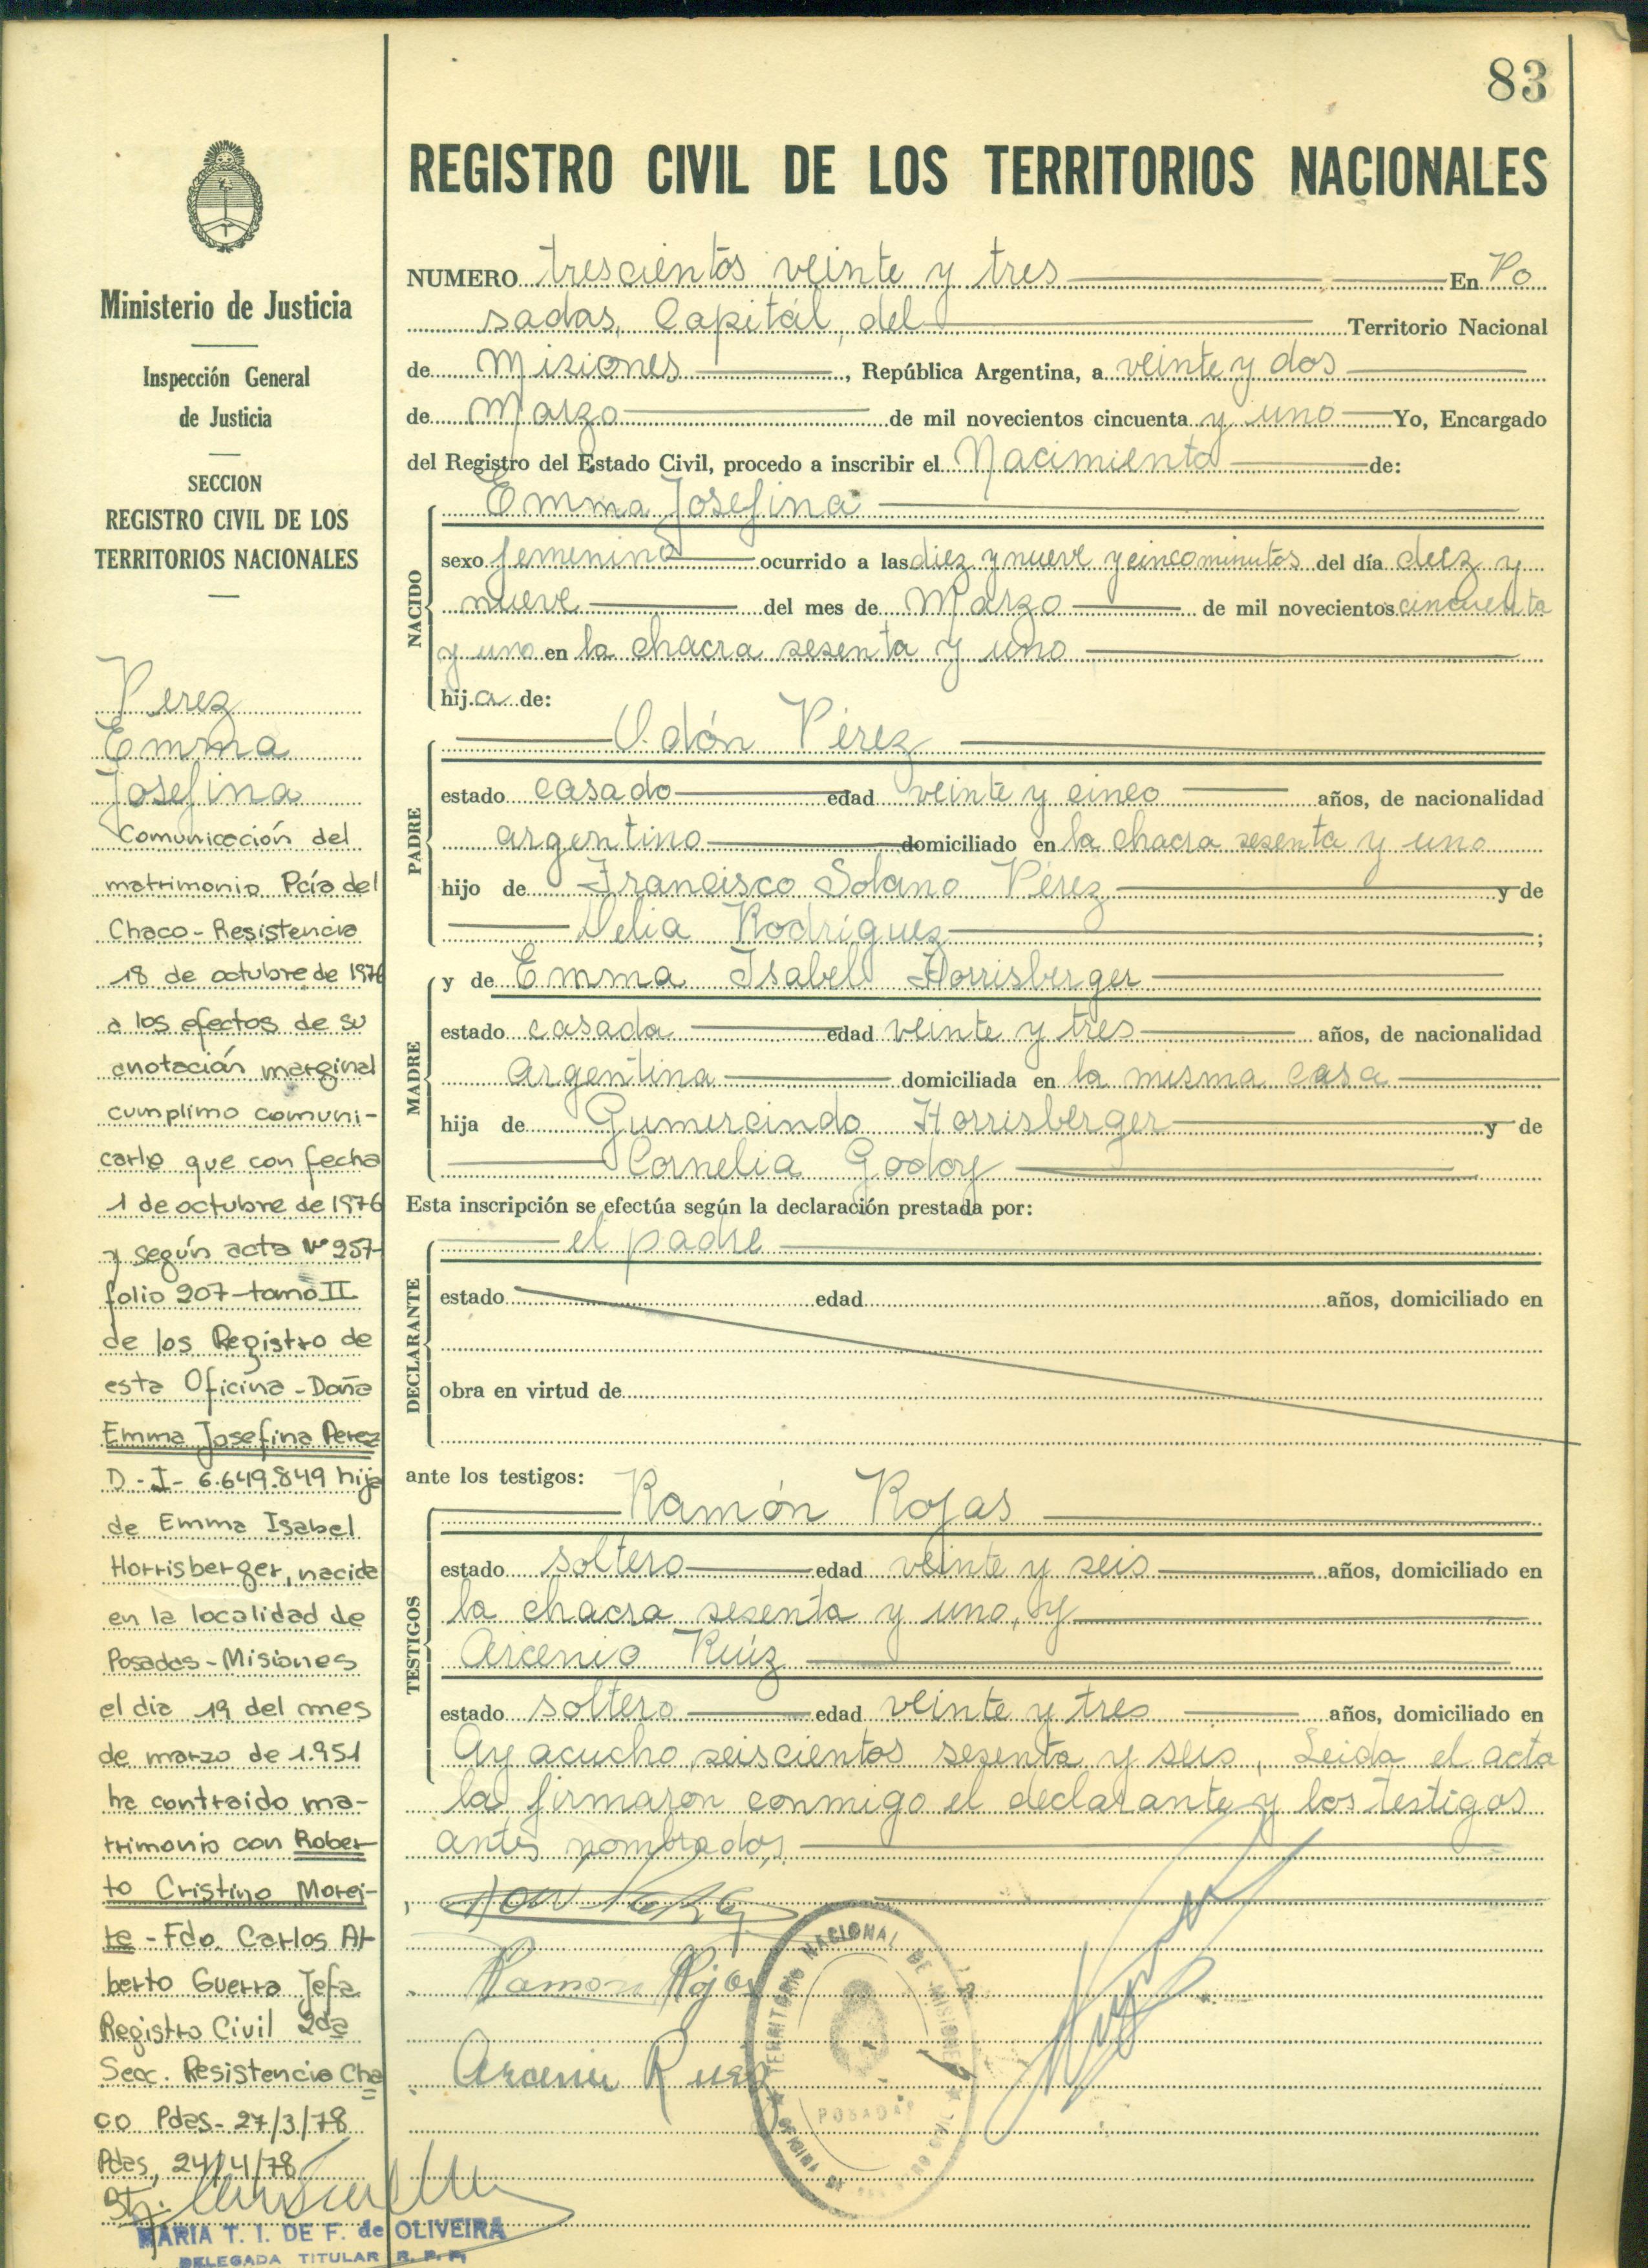 83
REGISTRO CIVIL DE LOS TERRITORIOS NACIONALES
Ministerio de Justicia
Inspección General
de Justicia
SECCION
REGISTRO CIVIL DE LOS
TERRITORIOS NACIONALES
Perez
Emma
Josefina
Comunicación del
matrimonio Pcia del
Chaco - Resistencia
18 de octubre de 1976
a los efectos de su
anotación marginal
cumplimo comuni-
carle que con fecha
1 de octubre de 1976
y según acta Nº 257-
folio 207 - tomo II
de los Registro de
esta Oficina - Doña
Emma Josefina Perez
D - I - 6.649.849 hija
de Emma Isabel
Horrisberger, nacida
en la localidad de
Posadas - Misiones
el dia 19 del mes
de marzo de 1.951
ha contraido ma-
trimonio con Rober-
to Cristino Morei-
re - Fdo. Carlos Al-
berto Guerra Jefa
Registro Civil 2da
Secc. Resistencia Cha
co Pdas - 27/3/78
Pdas, 24/4/78
MARIA T. I. DE F. de OLIVEIRA
DELEGADA TITULAR R. P. P.
NUMERO trescientos veinte y tres En Po
sadas, Capitál, del Territorio Nacional
de Misiones, República Argentina, a veinte y dos
de Marzo de mil novecientos cincuenta y uno Yo, Encargado
del Registro del Estado Civil, procedo a inscribir el Nacimiento de:
NACIDO
Emma Josefina
sexo femenino ocurrido a las diez y nueve y cinco minutos del día diez y
nueve del mes de Marzo de mil novecientos cincuenta
y uno en la chacra sesenta y uno
hija de:
PADRE
Odón Pérez
estado casado edad veinte y cinco años, de nacionalidad
argentino domiciliado en la chacra sesenta y uno
hijo de Francisco Solano Pérez y de
Delia Rodríguez;
MADRE
y de Emma Isabel Horrisberger
estado casada edad veinte y tres años, de nacionalidad
argentina domiciliada en la misma casa
hija de Gumercindo Horrisberger y de
Cornelia Godoy
Esta inscripción se efectúa según la declaración prestada por:
DECLARANTE
el padre
estado edad años, domiciliado en
obra en virtud de
ante los testigos:
TESTIGOS
Ramón Rojas
estado soltero edad veinte y seis años, domiciliado en
la chacra sesenta y uno, y
Arcenio Ruíz
estado soltero edad veinte y tres años, domiciliado en
Ayacucho seiscientos sesenta y seis, Leida el acta
la firmaron conmigo el declarante y los testigos
antes nombrados,
Ramon Rojas
Arcenio Ruiz
TERRITORIO NACIONAL DE MISIONES
POSADAS